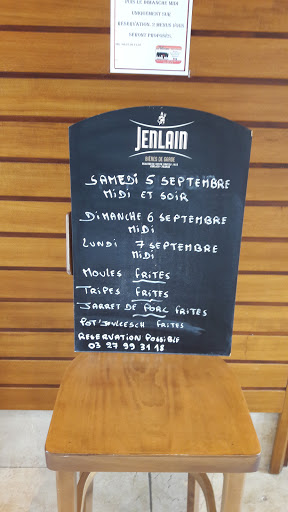 PUIS LE DIMANCHE MIDI
UNIQUEMENT SUR
RESERVATION. 2 MENUS
SERONT PROPOSÉS.
JENLAIN
BIÈRES DE GARDE
SAMEDI 5 SEPTEMBRE
MIDI ET SOIR
DIMANCHE 6 SEPTEMBRE
MIDI
LUNDI 7 SEPTEMBRE
MIDI
MOULES FRITES
TRIPES FRITES
JARRET DE PORC FRITES
POT'JEVLEESCH FRITES
RESERVATION POSSIBLE
03 27 99 31 18